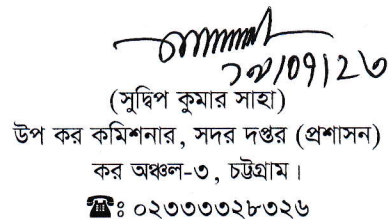 (সুদ্বিপ কুমার সাহা)
উপ কর কমিশনার, সদর দপ্তর (প্রশাসন)
কর অঞ্চল-৩, চট্টগ্রাম।
☎: ০২৩৩৩৩২৮৩২৬